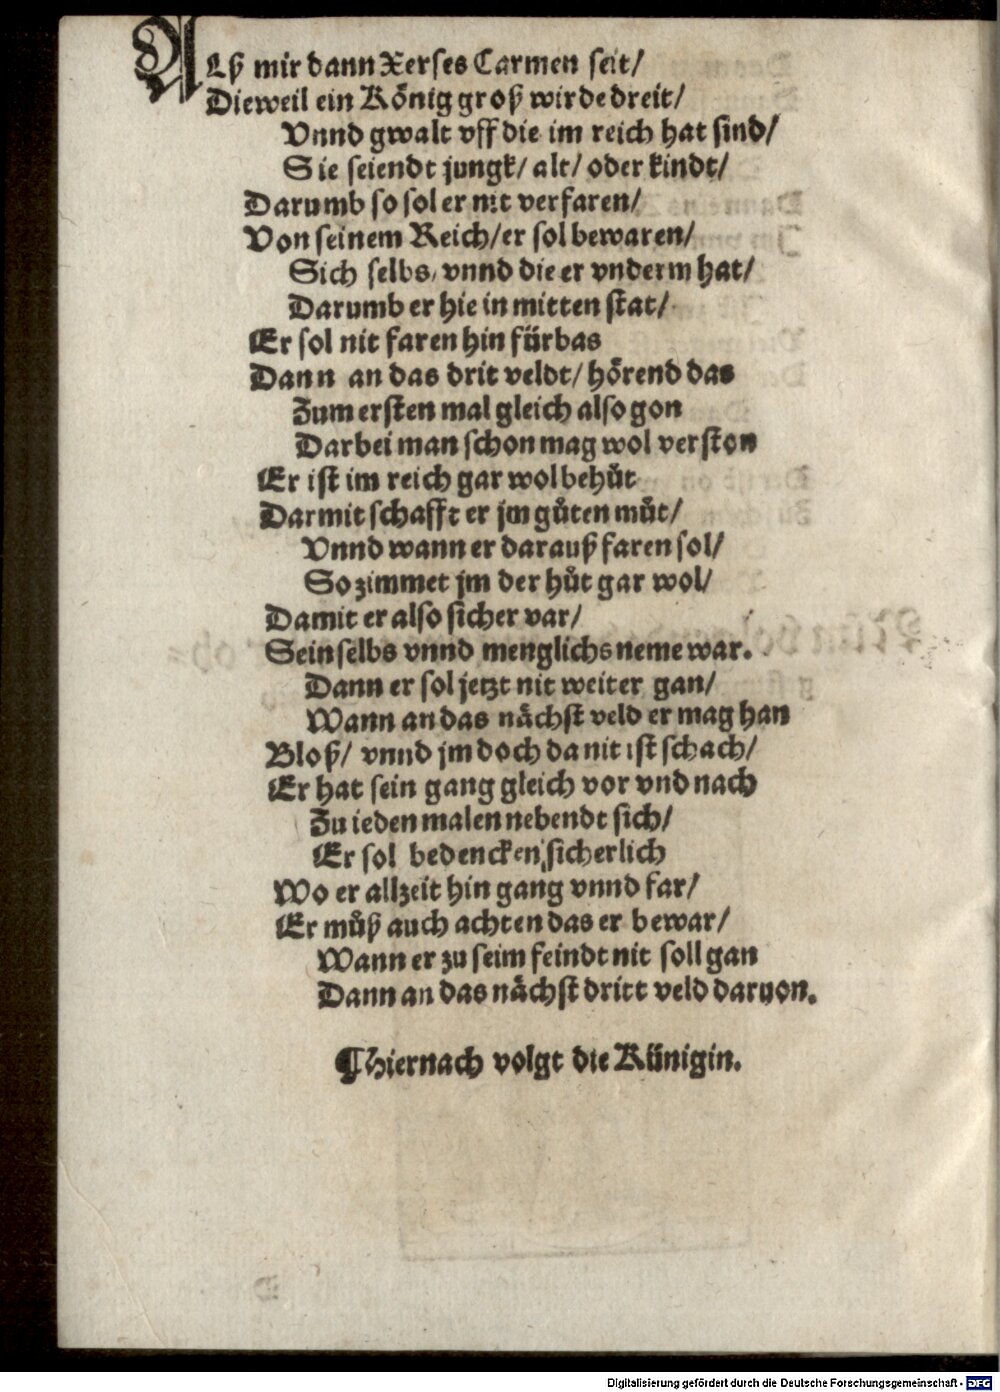 ALß mir dann Xerses Carmen seit/
Dieweil ein König groß wirde dreit/
Vnnd gwalt vff die im reich hat sind/
Sie seiendt jungk/ alt/ oder kindt/
Darumb so sol er nit verfaren/
Von seinem Reich/ er sol bewaren/
Sich selbs/ vnnd die er vnderm hat/
Darumb er hie in mitten stat/
Er sol nit faren hin fürbas
Dann an das drit veldt/ hörend das
Zum ersten mal gleich also gon
Darbei man schon mag wol verston
Er ist im reich gar wol behůt
Darmit schafft er jm gůten můt/
Vnnd wann er darauß faren sol/
So zimmet jm der hůt gar wol/
Damit er also sicher var/
Sein selbs vnnd menglichs neme war.
Dann er sol jetzt nit weiter gan/
Wann an das nächst veld er mag han
Bloß/ vnnd jm doch da nit ist schach/
Er hat sein gang gleich vor vnd nach
Zu ieden malen nebendt sich/
Er sol bedencken sicherlich
Wo er allzeit hin gang vnnd far/
Er můß auch achten das er bewar/
Wann er zu seim feindt nit soll gan
Dann an das nächst dritt veld daruon.
¶ Hiernach volgt die Künigin.
Digitalisierung gefördert durch die Deutsche Forschungsgemeinschaft - DFG